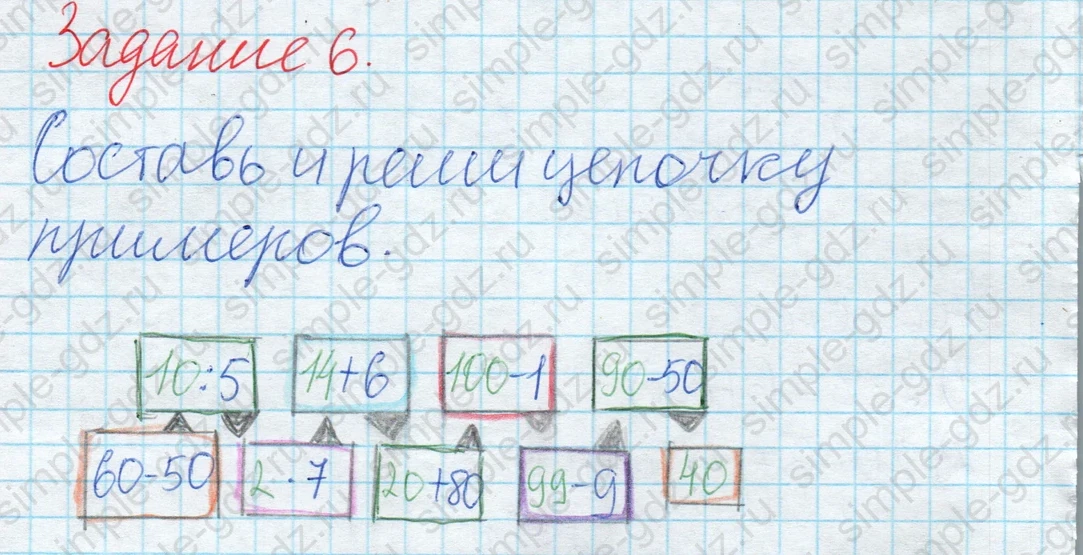 Задание 6.
Составь и реши цепочку
примеров.
10:5 14+6 100-1 90-50
60-50 2·7 20+80 99-9 40
simple-gdz.ru